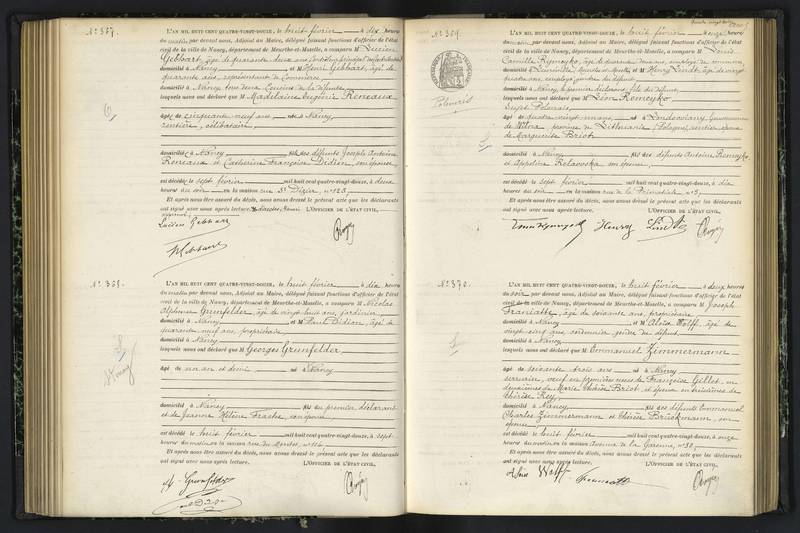 N° 367.
L'AN MIL HUIT CENT QUATRE-VINGT-DOUZE, le huit février à dix heures
du matin, par devant nous, Adjoint au Maire, délégué faisant fonctions d'officier de l'état
civil de la ville de Nancy, département de Meurthe-et-Moselle, a comparu M Lucien
Gebhart, âgé de quarante deux ans
domicilié à Nancy et M Henri Gebhart, âgé de
quarante ans, représentant de commerce
domicilié à Nancy tous deux cousins de la défunte
lesquels nous ont déclaré que M Madelaine Eugénie Reneaux
âgé de cinquante neuf ans né à Nancy
rentière, célibataire
domicilié à Nancy fils des défunts Joseph Antoine
Reneaux et Catherine Françoise Didion, son épouse
est décédé le sept février mil huit cent quatre-vingt-douze, à deux
heures du soir en la maison rue St Dizier, n° 123
Et après nous être assuré du décès, nous avons dressé le présent acte que les déclarants
ont signé avec nous après lecture. L'OFFICIER DE L'ÉTAT CIVIL,
Lucien Gebhart
H Gebhart
N° 368.
L'AN MIL HUIT CENT QUATRE-VINGT-DOUZE, le huit février à dix heures
du matin, par devant nous, Adjoint au Maire, délégué faisant fonctions d'officier de l'état
civil de la ville de Nancy, département de Meurthe-et-Moselle, a comparu M Nicolas
Alphonse Grunfelder, âgé de vingt huit ans, jardinier
domicilié à Nancy et M Paul Didion, âgé de
quarante neuf ans, propriétaire
domicilié à Nancy
lesquels nous ont déclaré que M Georges Grunfelder
âgé de un an et demi né à Nancy
domicilié à Nancy fils du premier déclarant
et de Jeanne Hélène Frache, son épouse
est décédé le huit février mil huit cent quatre-vingt-douze, à sept
heures du matin en la maison rue de
Et après nous être assuré du décès, nous avons dressé le présent acte que les déclarants
ont signé avec nous après lecture. L'OFFICIER DE L'ÉTAT CIVIL,
Grunfelder
N° 369.
Polonais
L'AN MIL HUIT CENT QUATRE-VINGT-DOUZE, le huit février à onze heures
du matin, par devant nous, Adjoint au Maire, délégué faisant fonctions d'officier de l'état
civil de la ville de Nancy, département de Meurthe-et-Moselle, a comparu M Louis
Camille Remeyko, âgé de
domicilié à Lunéville et M Henry Lindt, âgé de vingt
quatre ans, employé
domicilié à Nancy, le premier déclarant fils du défunt
lesquels nous ont déclaré que M Léon Remeyko
sujet Polonais
âgé de quatre vingt un ans né à Gouvernement
de Wilna, province de Lithuanie (Pologne) rentier époux
de Marguerite Briot
domicilié à Nancy fils des défunts Antoine Remeyko
et Appoline son épouse
est décédé le sept février mil huit cent quatre-vingt-douze, à dix
heures du soir en la maison rue de la Primatiale n° 3
Et après nous être assuré du décès, nous avons dressé le présent acte que les déclarants
ont signé avec nous après lecture. L'OFFICIER DE L'ÉTAT CIVIL,
Henry Lindt
N° 370.
L'AN MIL HUIT CENT QUATRE-VINGT-DOUZE, le huit février à deux heures
du soir, par devant nous, Adjoint au Maire, délégué faisant fonctions d'officier de l'état
civil de la ville de Nancy, département de Meurthe-et-Moselle, a comparu M Joseph
Franiatte, âgé de soixante ans, propriétaire
domicilié à Nancy et M Aloïse Wolff, âgé de
vingt cinq ans, cordonnier gendre du défunt
domicilié à Nancy
lesquels nous ont déclaré que M Emmanuel Zimmermann
âgé de soixante trois ans né à Nancy
serrurier, veuf en premières noces de Françoise Gillot, en
deuxièmes de Marie Thérèse Briot et époux en troisièmes de
Thérèse Rey
domicilié à Nancy fils des défunts Emmanuel
Charles Zimmermann et Thérèse Brückmann, son
épouse
est décédé le huit février mil huit cent quatre-vingt-douze, à onze
heures du matin en la maison Avenue de la Garenne, n° 38
Et après nous être assuré du décès, nous avons dressé le présent acte que les déclarants
ont signé avec nous après lecture. L'OFFICIER DE L'ÉTAT CIVIL,
Aloïse Wolff
Franiatte